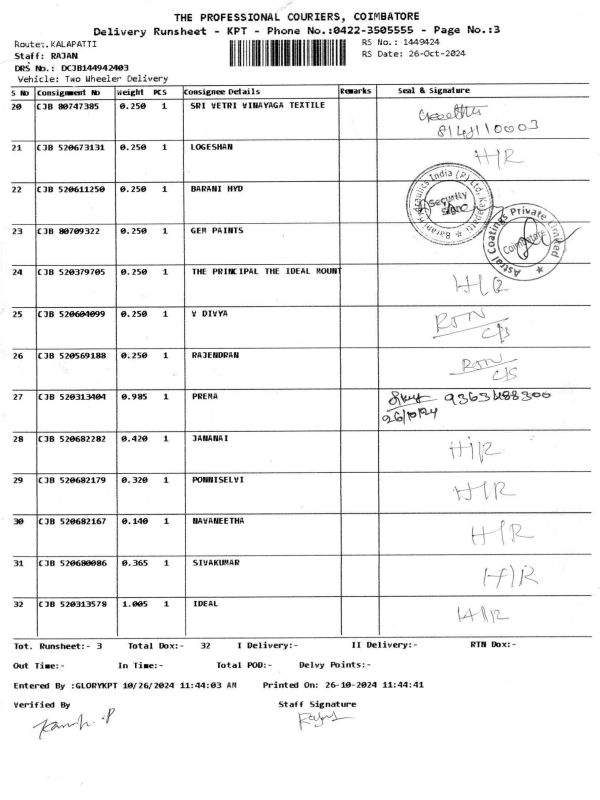 THE PROFESSIONAL COURIERS, COIMBATORE
Delivery Runsheet - KPT - Phone No.:0422-3505555 - Page No.:3
Route:.KALAPATTI RS No.: 1449424
Staff: RAJAN RS Date: 26-Oct-2024
DRS No.: DCJB144942403
Vehicle: Two Wheeler Delivery
S No Consignment No Weight PCS Consignee Details Remarks Seal & Signature
20 CJB 80747385 0.250 1 SRI VETRI VINAYAGA TEXTILE
21 CJB 520673131 0.250 1 LOGESHAN H/R
22 CJB 520611250 0.250 1 BARANI HYD Barani Hydraulics India (P) Ltd, Kalapatti Security
23 CJB 80709322 0.250 1 GEM PAINTS Astral Coatings Private Limited Coimbatore
24 CJB 520379705 0.250 1 THE PRINCIPAL THE IDEAL MOUNT H/R
25 CJB 520604099 0.250 1 V DIVYA RTN C/S
26 CJB 520569188 0.250 1 RAJENDRAN RTN C/S
27 CJB 520313404 0.985 1 PREMA 9363488300
26/10/24
28 CJB 520682282 0.420 1 JANANAI H/R
29 CJB 520682179 0.320 1 PONNISELVI H/R
30 CJB 520682167 0.140 1 NAVANEETHA H/R
31 CJB 520680086 0.365 1 SIVAKUMAR H/R
32 CJB 520313578 1.005 1 IDEAL H/R
Tot. Runsheet:- 3 Total Dox:- 32 I Delivery:- II Delivery:- RTN Dox:-
Out Time:- In Time:- Total POD:- Delvy Points:-
Entered By :GLORYKPT 10/26/2024 11:44:03 AM Printed On: 26-10-2024 11:44:41
Verified By Staff Signature